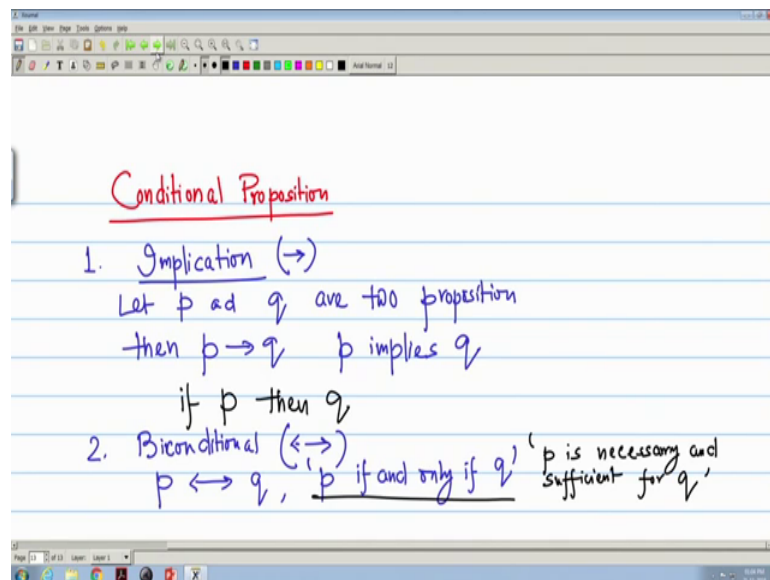 Journal
File Edit View Page Tools Options Help
Arial Normal 12
Conditional Proposition
1. Implication (→)
Let p ad q are two proposition
then p → q p implies q
if p then q
2. Biconditional (↔)
p ↔ q, 'p if and only if q' 'p is necessary and sufficient for q'
Page 13 of 13 Layer: Layer 1